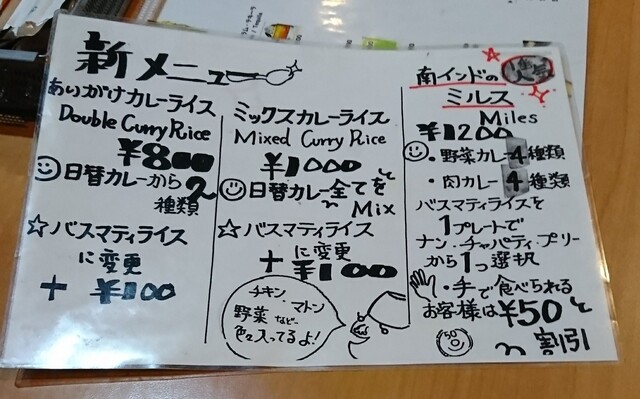 新メニュー
あいがけカレーライス
Double Curry Rice
¥800
日替カレーから2
種類
☆バスマティライス
に変更
+ ¥100
ミックスカレーライス
Mixed Curry Rice
¥1000
日替カレー全てを
Mix
☆バスマティライス
に変更
+¥100
チキン、マトン
野菜 など…
色々入ってるよ!
南インドの
人気
ミルス
Miles
¥1200
・野菜カレー4種類
・肉カレー4種類
バスマティライスを
1プレートで
ナン・チャパティ・プリー
から1つ選択
・手で食べられる
お客様は¥50
50
割引